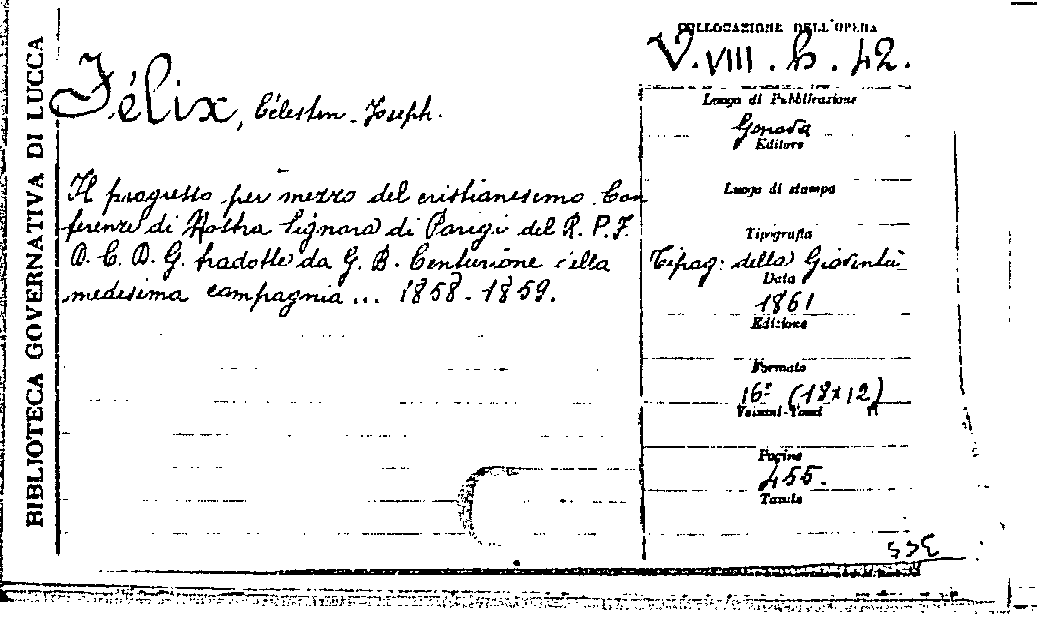 BIBLIOTECA GOVERNATIVA DI LUCCA
COLLOCAZIONE DELL'OPERA
V. VIII. b. 42.
Félix, Célestin-Joseph.
Il progresso per mezzo del cristianesimo Con
ferenze di Nostra Signora di Parigi del R. P. F.
D. C. D. G. tradotte da G. B. Centurione della
medesima compagnia... 1858-1859.
Luogo di Pubblicazione
Genova
Editore
Luogo di stampa
Tipografia
Tipog: della Gioventù
Data
1861
Edizione
Formato
16º (18x12)
Volumi-Tomi n
Pagine
455.
Tavole